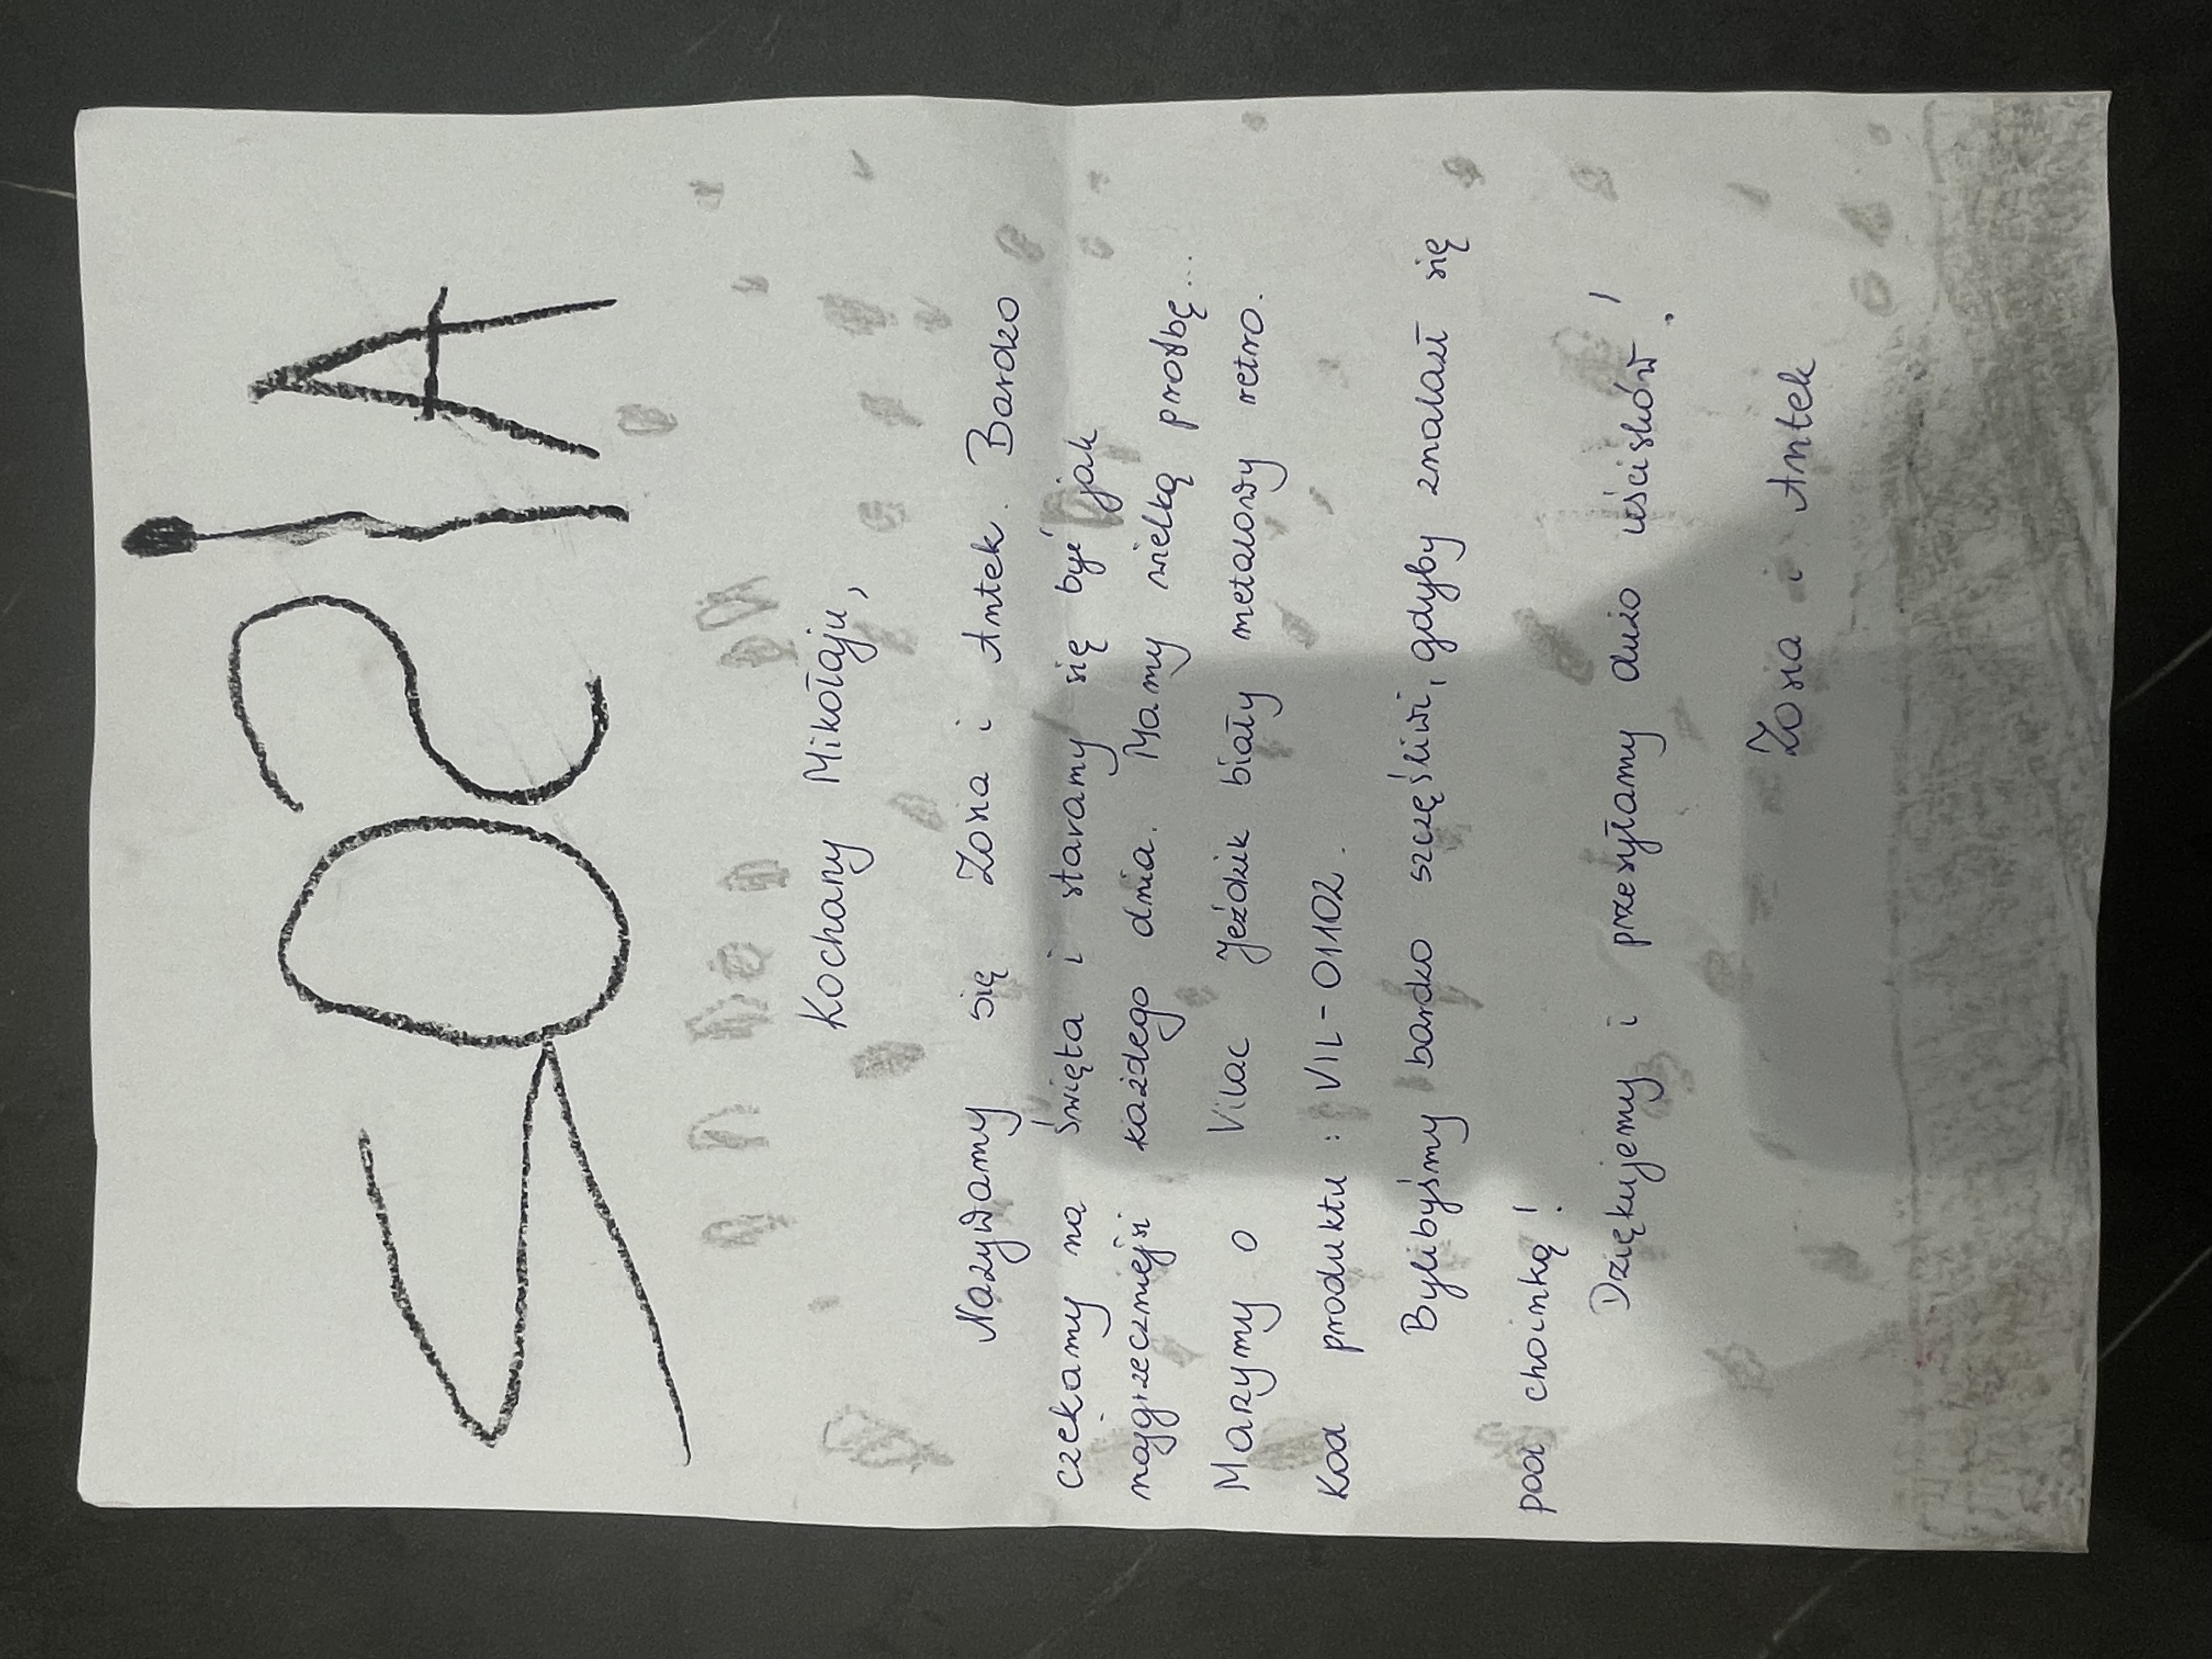 ZOSiA
Kochany Mikołaju,
Nazywamy się Zosia i Antek. Bardzo
czekamy na Święta i staramy się być jak
najgrzeczniejsi każdego dnia. Mamy wielką prośbę...
Marzymy o Vilac Jeździk biały metalowy retro.
Kod produktu: VIL-01102.
Bylibyśmy bardzo szczęśliwi, gdyby znalazł się
pod choinką!
Dziękujemy i przesyłamy dużo uścisków!
Zosia i Antek